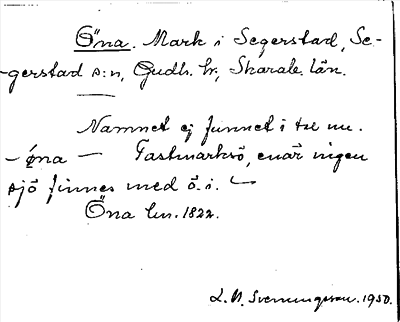 Öna. Mark i Segerstad, Se-
gerstad s:n, Gudh. hr, Skarab. län.
Namnet ej funnet i tre nu.
-öna — Fastmarksö, enär ingen
sjö finnes med ö. i.
Öna lm. 1822.
L. M. Svenungsson. 1930.